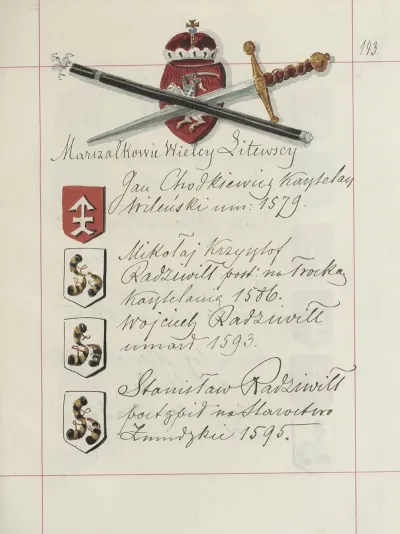 143
Marszałkowie Wielcy Litewscy
Jan Chodkiewicz Kasztelan
Wileński um: 1579.
Mikołaj Krzysztof
Radziwiłł post: na Trocką
Kasztelanią 1586.
Wojciech Radziwiłł
umarł 1593.
Stanisław Radziwiłł
postąpił na Starostwo
Żmudzkie 1595.